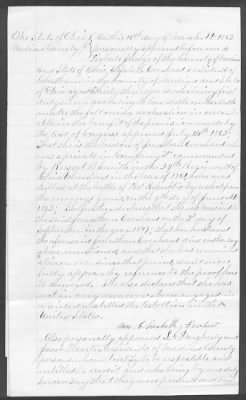 The State of Ohio } On this 18th day of March AD 1863
County } Personally appeared before me a
Probate Judge of the County of
and State of Ohio, Elizabeth Overhart a resident of
in the County of and State
of Ohio aged Thirty three years who being first
duly sworn according to law doth on her oath
make the following declaration in order to
obtain the benefit of the provision made by
the act of Congress approved July 14th 1862,
That she is the widow of Jonathan Overhart who
was a private in Company commanded
by Smith in the 29th Regiment of
Ohio Volunteers in the war of 1861, who was
killed at the battle of Port Republic by a shot from
the enemys guns on the 9th day of June AD
1862; She further declares that she was married to
the said Jonathan Overhart on the day of
September in the year 1847; that her husband
the aforesaid Jonathan Overhart died on the day
above mentioned and that she has remained
a widow ever since that period, as will more
fully appear by reference to the proof here
to annexed. She also declares that she has
not in any manner been engaged in
or aided or abetted the Rebellion in the
United States.
Mrs. Elizabeth Overhart
Also personally appeared
residents of County
persons whom I certify to be respectable and
entitled to credit and who being by me duly
sworn say that they were present and saw